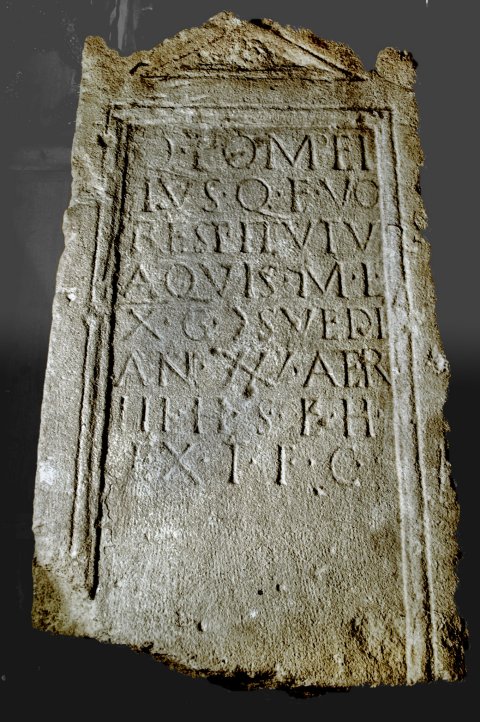 Q·POMPEI
IVS·Q·F·VO
RESTITVTV
AQVIS·M·L
X·G·Ɔ SVEDI
AN·XXV·AER
III·H·S·E·H
EX·T·F·C